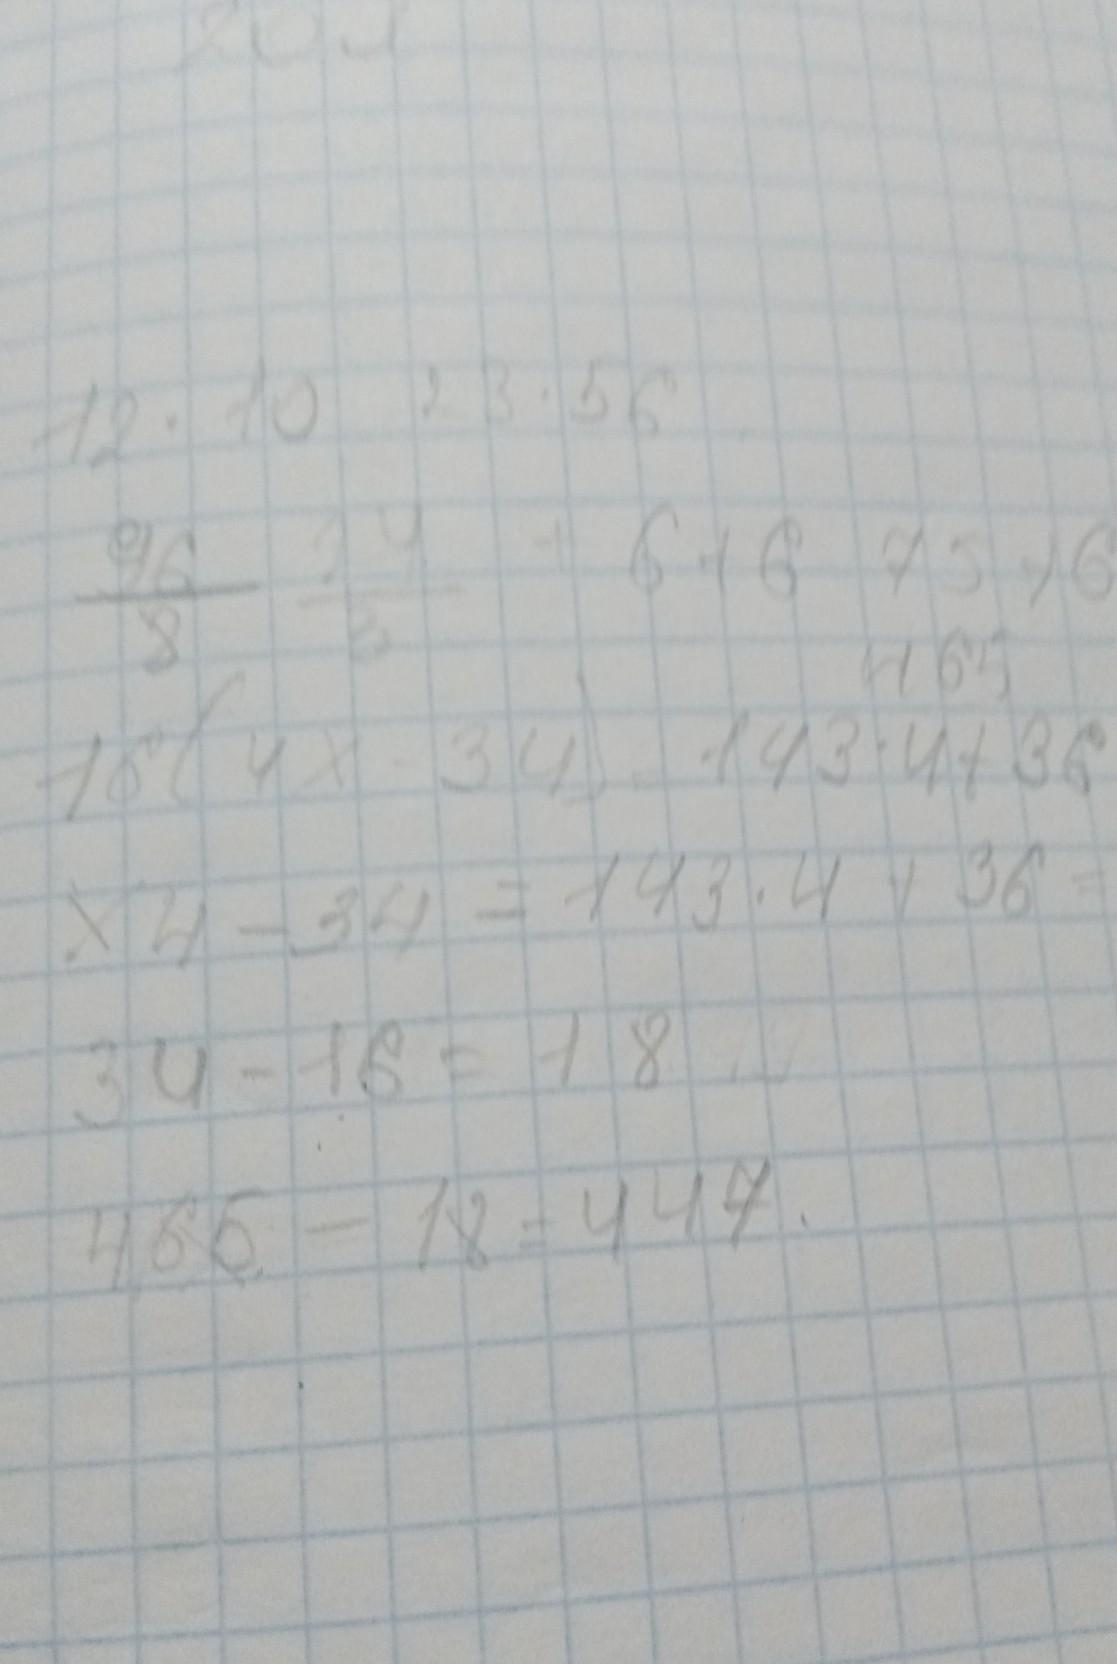 203
12·10 23·56
96/8 24/3 + 6+6 75+6
465
16(4x-34) 143·4+36
x4-34=143·4+36=
34-16=18
465-18=447.